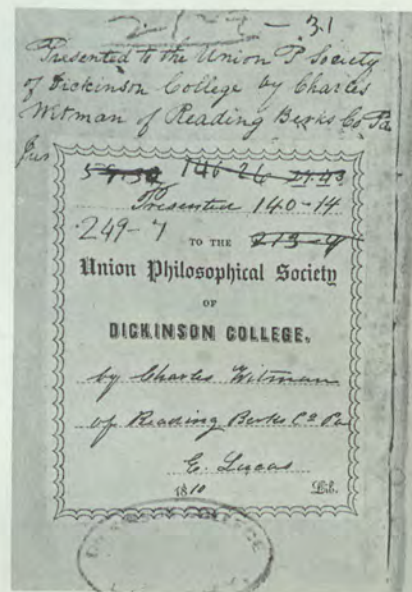 - 31
Presented to the Union P Society
of Dickinson College by Charles
Witman of Reading Berks Co Pa
59.34 146-26 24.43
Presented 140-14
249-7
TO THE 213-9
Union Philosophical Society
OF
DICKINSON COLLEGE,
by Charles Witman
of Reading Berks Co Pa
E. Lucas
1810 Lib.
DICKINSON COLLEGE